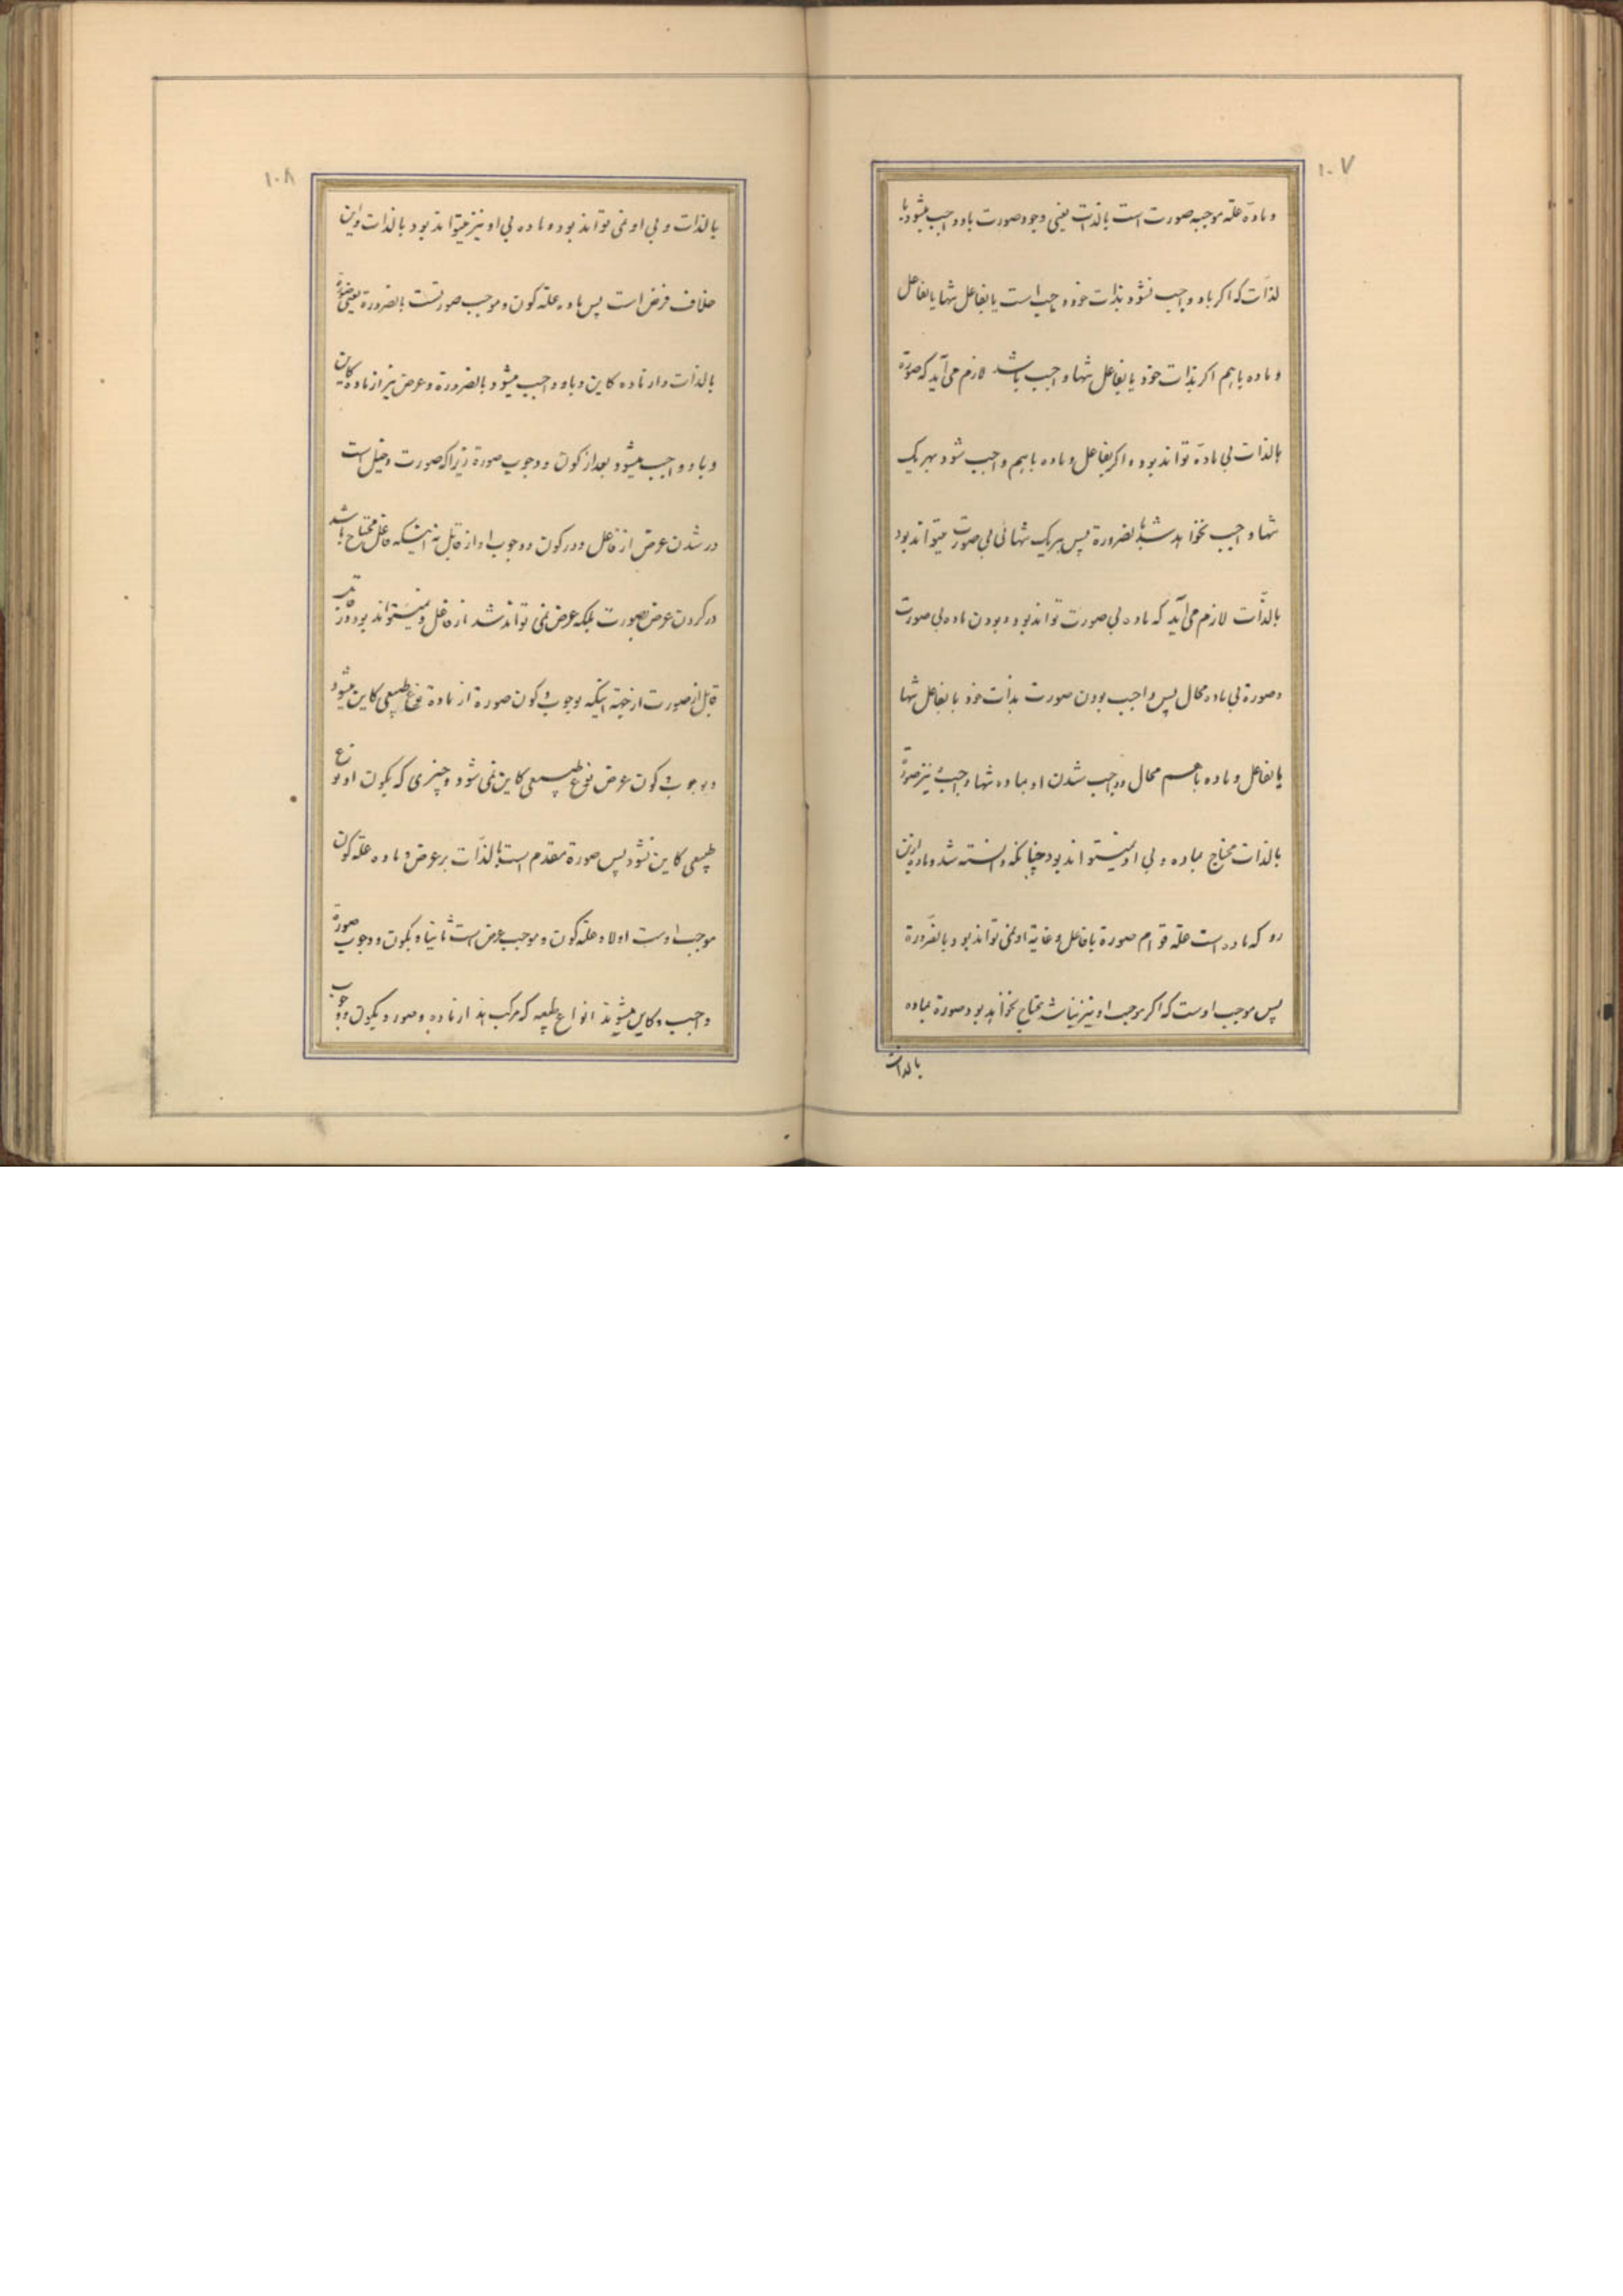 ۱۰۷
و مادّه علّة موجبه صورت است بالذات یعنی وجود صورت باو واجب میشود با
لذّات که اکر باو واجب نشود بذات خود واجب است یا بفاعل تنها یا بفاعل
و ماده باهم اکر بذات خود یا بفاعل تنها واجب باشد لازم می آید که صورة
بالذات بی مادّه تواند بود و اکر بفاعل و ماده باهم واجب شود بهر یک
تنها واجب نخواهد شد بالضرورة پس هر یک تنهائی بی صورت میتواند بود
بالذّات لازم می آید که ماده بی صورت تواند بود و بودن ماده بی صورت
و صورة بی ماده محال پس واجب بودن صورت بذات خود یا بفاعل تنها
یا بفاعل و ماده باهم محال و واجب شدن او بماده تنها واجب نیز صورة
بالذات محتاج بماده و بی او نمیتواند بود چنانکه دانسته شد و ماده ازین
رو که ماده است علّة قوام صورة با فاعل و غایة او نمی تواند بود بالضّرورة
پس موجب اوست که اکر موجب او نیز نباشد محتاج نخواهد بود صورة بماده
بالذات
۱۰۸
بالذات و بی او نمی تواند بود و ماده بی او نیز میتواند بود بالذات و این
خلاف فرض است پس ماده علّة کون و موجب صورتست بالضرورة یعنی صورة
بالذات از ماده کاین و باو واجب میشود بالضرورة و عرض نیز از ماده کاین
و باو واجب میشود بعد از کون و وجوب صورة زیرا که صورت دخیل است
در شدن عرض از فاعل و در کون و وجوب او از قابل نه اینکه فاعل محتاج باشد
در کردن عرض بصورت بلکه عرض نمی تواند شد از فاعل و نمیتواند بود از
قابل قبل از صورت از جهة اینکه بوجوب و کون صورة از مادة نوع طبیعی کاین میشود
و بوجوب و کون عرض نوع طبیعی کاین نمی شود و چیزی که بکون او نوع
طبیعی کاین نشود پس صورة مقدم است بالذّات بر عرض و ماده علّة کون
موجب اوست اولا و علّة کون و موجب عرض است ثانیا و بکون و وجوب صورة
واجب و کاین میشوند انواع طبیعیه که مرکب اند از ماده و صور و بکون و وجوب